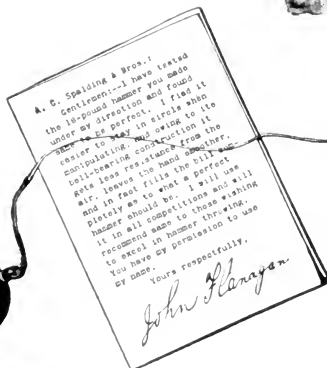 A. G. Spalding & Bros.:
Gentlemen:--I have tested
the 16-pound hammer you made
under my direction and found
same to be perfect. I find it
easier to stay in circle when
manipulating, and owing to its
ball-bearing construction it
gets less resistance from the
air, leaves the hand smoother,
and in fact fills the bill com-
pletely as to what a perfect
hammer should be. I will use
it in all competitions and will
recommend same to those wishing
to excel in hammer throwing.
You have my permission to use
my name.
Yours respectfully,
John Flanagan